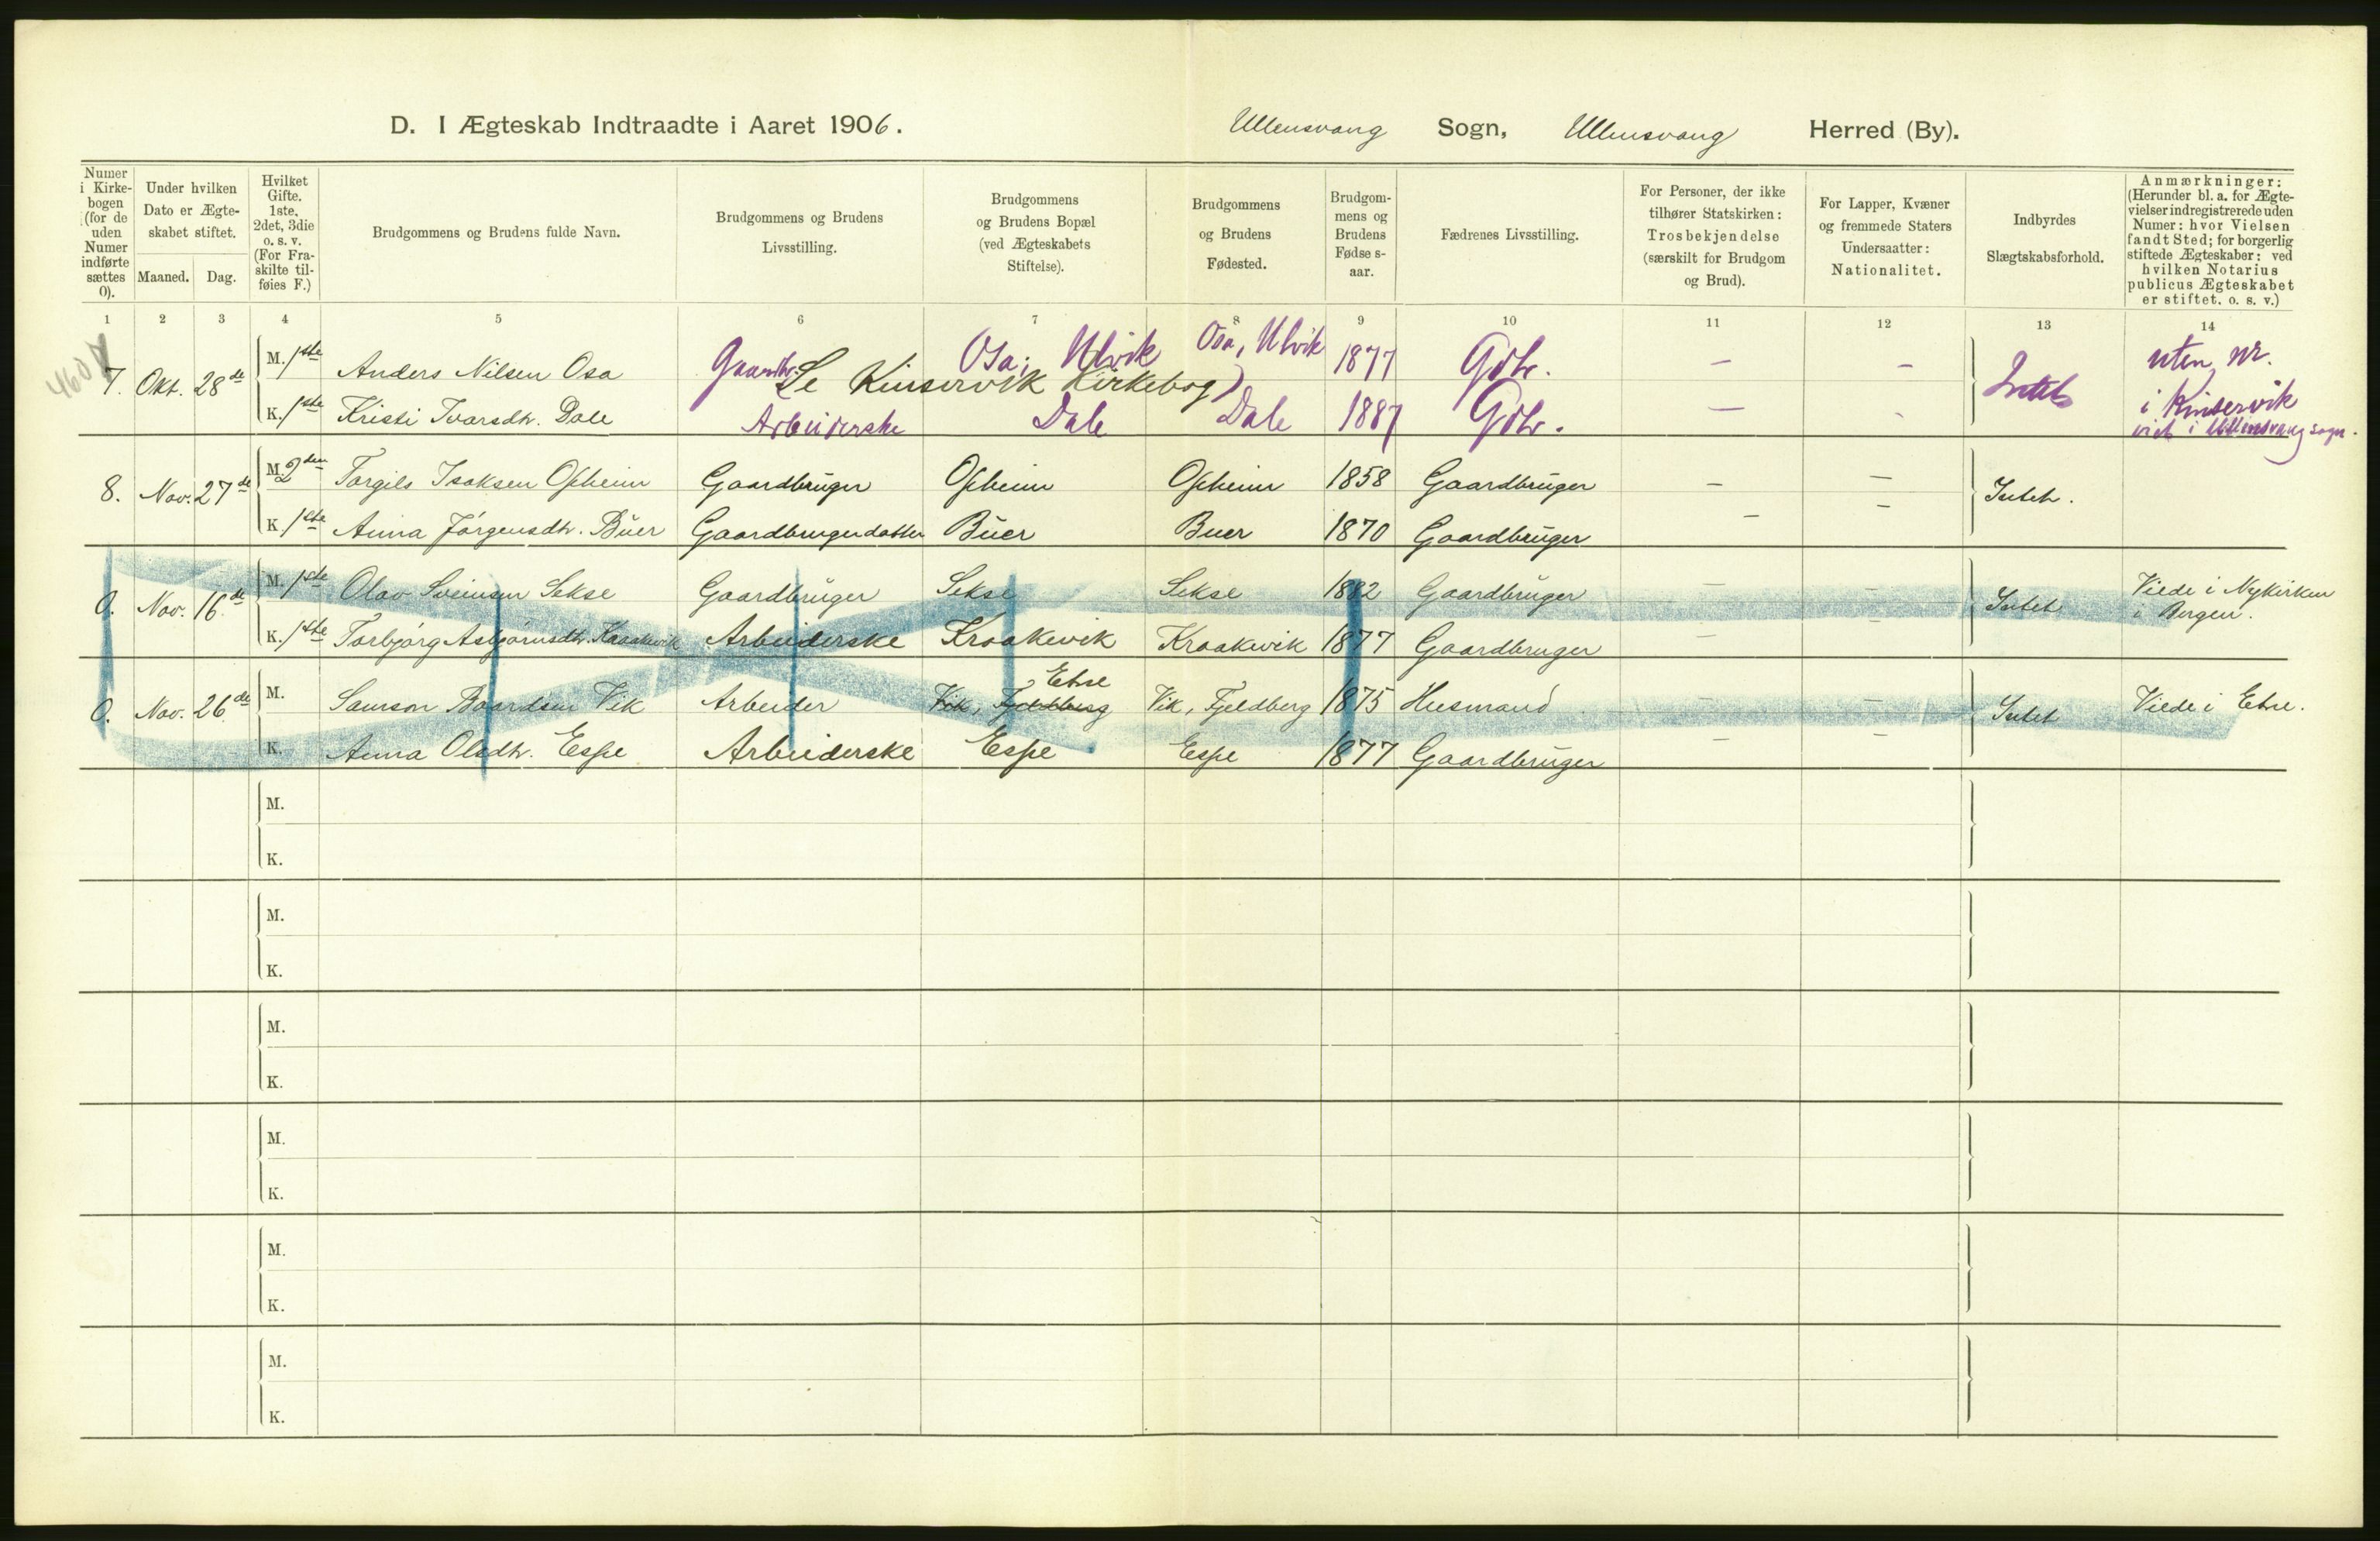 D. I Ægteskab Indtraadte i Aaret 1906. Ullensvang Sogn, Ullensvang Herred (By).
Numer i Kirkebogen (for de uden Numer indførte sættes 0).
Under hvilken Dato er Ægteskabet stiftet.
Maaned. Dag.
Hvilket Gifte. 1ste, 2det, 3die o. s. v. (For Fraskilte tilføies F.)
Brudgommens og Brudens fulde Navn.
Brudgommens og Brudens Livsstilling.
Brudgommens og Brudens Bopæl (ved Ægteskabets Stiftelse).
Brudgommens og Brudens Fødested.
Brudgommens og Brudens Fødselsaar.
Fædrenes Livsstilling.
For Personer, der ikke tilhører Statskirken: Trosbekjendelse (særskilt for Brudgom og Brud).
For Lapper, Kvæner og fremmede Staters Undersaatter: Nationalitet.
Indbyrdes Slægtskabsforhold.
Anmærkninger: (Herunder bl. a. for Ægtevielser indregistrerede uden Numer: hvor Vielsen fandt Sted; for borgerlig stiftede Ægteskaber: ved hvilken Notarius publicus Ægteskabet er stiftet. o. s. v.)
1 2 3 4 5 6 7 8 9 10 11 12 13 14
7. Okt. 28de M. 1ste Anders Nilsen Osa Gaardbr. Osa, Ulvik Osa, Ulvik 1877 Gdbr. — — Intet uten nr.
Se Kinservik Kirkebog)
K. 1ste Kristi Ivarsdtr. Dale Arbeiderske Dale Dale 1887 Gdbr. — - i Kinservik
viet i Ullensvang sogn.
8. Nov. 27de M. 2den Torgils Isaksen Opheim Gaardbruger Opheim Opheim 1858 Gaardbruger — — Intet.
K. 1ste Anna Jørgensdtr. Buer Gaardbrugerdatter Buer Buer 1870 Gaardbruger — —
0. Nov. 16de M. 1ste Olav Sveinsen Sekse Gaardbruger Sekse Sekse 1882 Gaardbruger — — Intet Viede i Nykirken
i Bergen.
K. 1ste Torbjørg Asbjørnsdtr. Kraakevik Arbeiderske Kraakevik Kraakevik 1877 Gaardbruger — —
Etne
0. Nov. 26de M. Samson Baardsen Vik Arbeider Vik, Fjeldberg Vik, Fjeldberg 1875 Husmand — — Intet Viede i Etne.
K. Anna Olsdtr. Espe Arbeiderske Espe Espe 1877 Gaardbruger — —
M.
K.
M.
K.
M.
K.
M.
K.
M.
K.
M.
K.